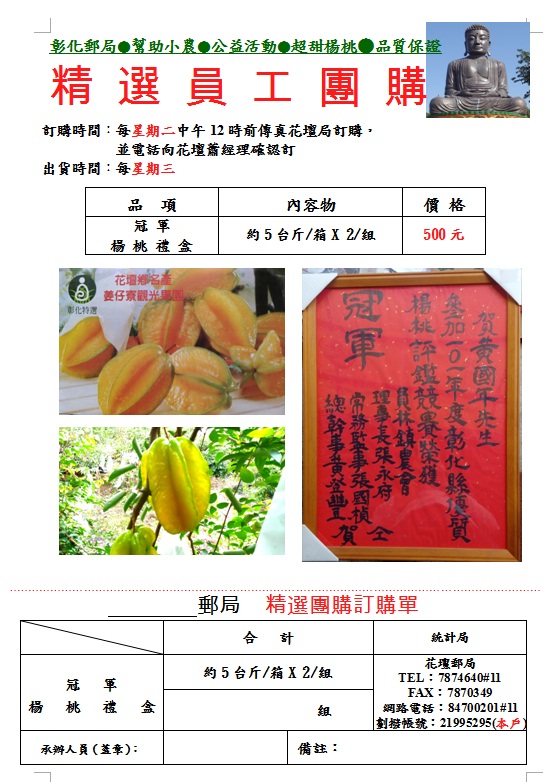 彰化郵局●幫助小農●公益活動●超甜楊桃●品質保證
精選員工團購
訂購時間：每星期二中午12時前傳真花壇局訂購，
並電話向花壇蕭經理確認訂
出貨時間：每星期三
品 項 內容物 價 格
冠 軍
楊 桃 禮 盒
約5台斤/箱X 2/組
500元
花壇鄉名產
姜仔寮觀光果園
彰化特選
賀黃國年先生
參加一○一年度彰化縣優質
楊桃評鑑競賽榮獲
冠軍
員林鎮農會
理事長張永府
常務監事張國楨 仝
總幹事黃登豐 賀
郵局 精選團購訂購單
合 計 統計局
冠 軍
楊 桃 禮 盒
約5台斤/箱X 2/組
組
花壇郵局
TEL：7874640#11
FAX：7870349
網路電話：84700201#11
劃撥帳號：21995295(本戶)
承辦人員(蓋章)： 備註：